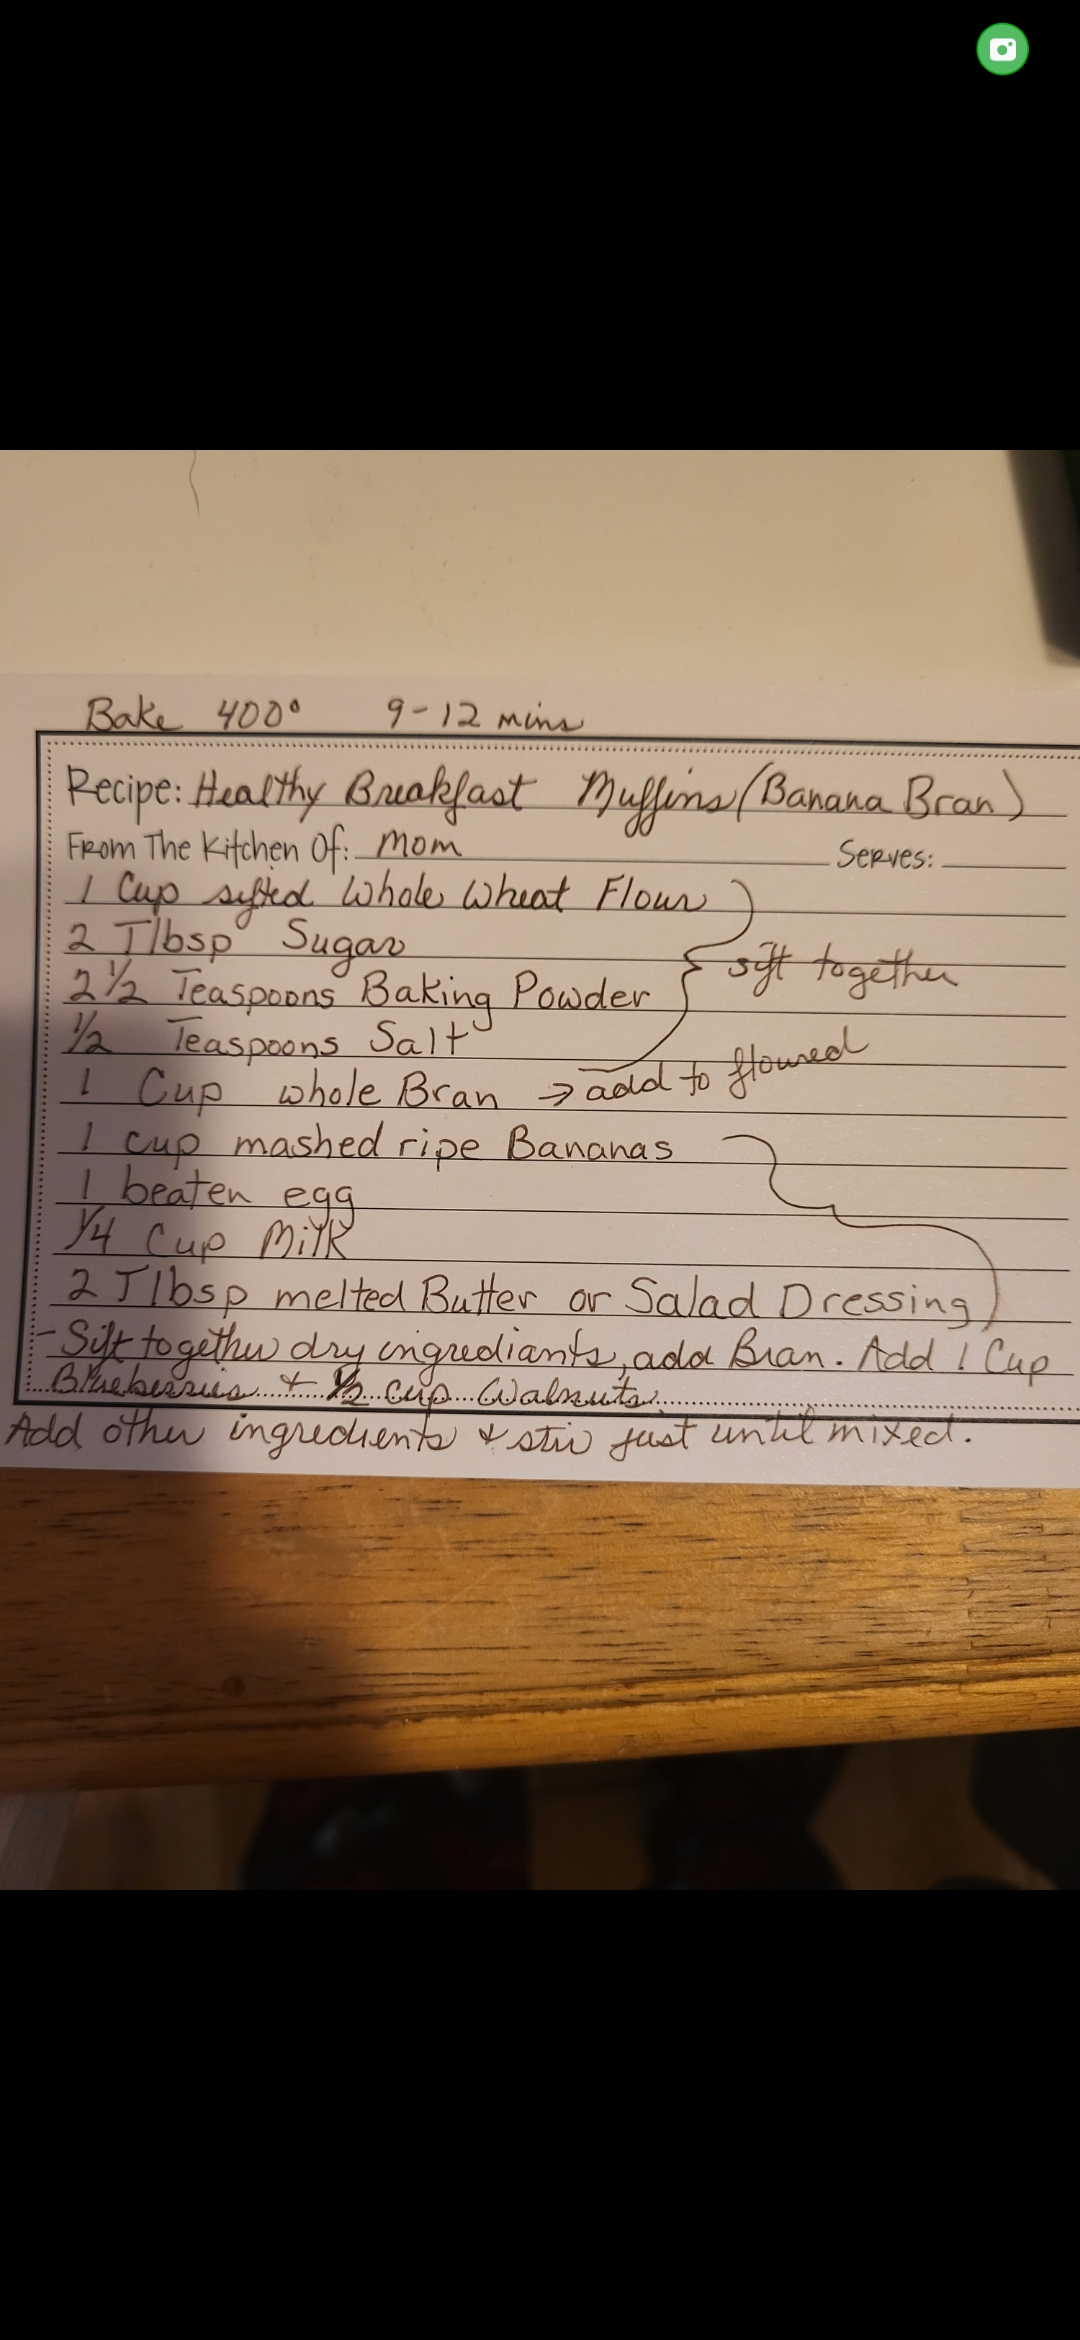 Bake 400° 9-12 mins
Recipe: Healthy Breakfast Muffins (Banana Bran)
From The Kitchen Of: Mom Serves:
1 Cup sifted Whole Wheat Flour
2 Tlbsp Sugar
sift together
2 1/2 Teaspoons Baking Powder
1/2 Teaspoons Salt
1 Cup whole Bran → add to floured
1 cup mashed ripe Bananas
1 beaten egg
1/4 Cup Milk
2 Tlbsp melted Butter or Salad Dressing
- Sift together dry ingrediants, add Bran. Add 1 Cup
Blueberries + 1/2 cup Walnuts.
Add other ingredients & stir just until mixed.